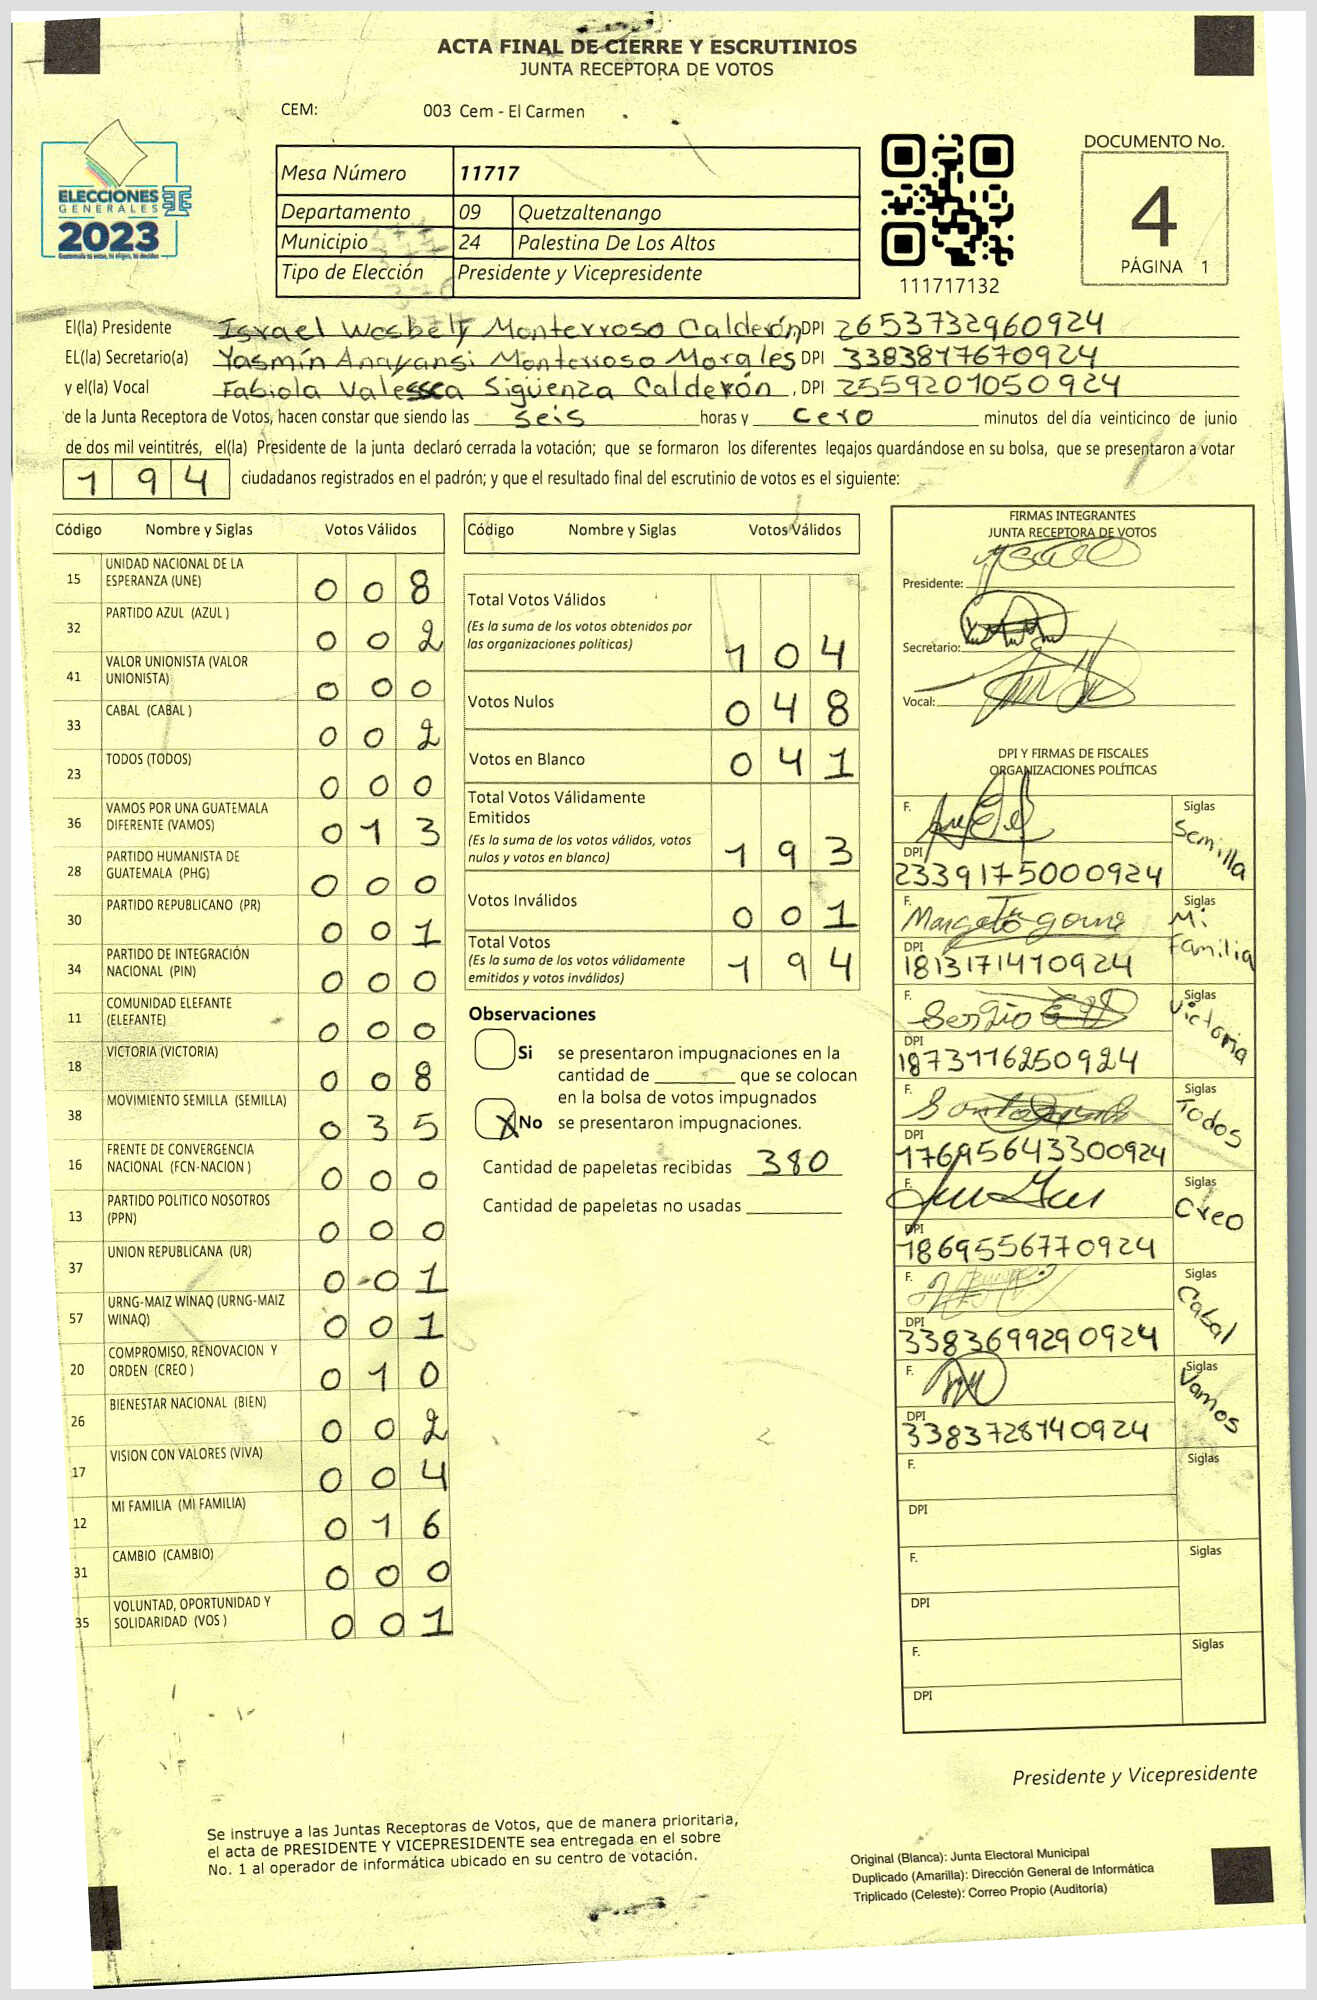 ACTA FINAL DE CIERRE Y ESCRUTINIOS
JUNTA RECEPTORA DE VOTOS
CEM: 003 Cem - El Carmen
ELECCIONES
GENERALES
2023
Mesa Número 11717
Departamento 09 Quetzaltenango
Municipio 24 Palestina De Los Altos
Tipo de Elección Presidente y Vicepresidente
111717132
DOCUMENTO No.
4
PÁGINA 1
El(la) Presidente Israel Wesbely Monterroso Calderón, DPI 2653732960924
EL(la) Secretario(a) Yasmín Anayansi Monterroso Morales DPI 3383817670924
y el(la) Vocal Fabiola Valessca Sigüenza Calderón, DPI 2559201050924
de la Junta Receptora de Votos, hacen constar que siendo las seis horas y cero minutos del día veinticinco de junio
de dos mil veintitrés, el(la) Presidente de la junta declaró cerrada la votación; que se formaron los diferentes legajos quardándose en su bolsa, que se presentaron a votar
194 ciudadanos registrados en el padrón; y que el resultado final del escrutinio de votos es el siguiente:
Código Nombre y Siglas Votos Válidos
15 UNIDAD NACIONAL DE LA ESPERANZA (UNE) 008
32 PARTIDO AZUL (AZUL ) 002
41 VALOR UNIONISTA (VALOR UNIONISTA) 000
33 CABAL (CABAL ) 002
23 TODOS (TODOS) 000
36 VAMOS POR UNA GUATEMALA DIFERENTE (VAMOS) 013
28 PARTIDO HUMANISTA DE GUATEMALA (PHG) 000
30 PARTIDO REPUBLICANO (PR) 001
34 PARTIDO DE INTEGRACIÓN NACIONAL (PIN) 000
11 COMUNIDAD ELEFANTE (ELEFANTE) 000
18 VICTORIA (VICTORIA) 008
38 MOVIMIENTO SEMILLA (SEMILLA) 035
16 FRENTE DE CONVERGENCIA NACIONAL (FCN-NACION ) 000
13 PARTIDO POLITICO NOSOTROS (PPN) 000
37 UNION REPUBLICANA (UR) 001
57 URNG-MAIZ WINAQ (URNG-MAIZ WINAQ) 001
20 COMPROMISO, RENOVACION Y ORDEN (CREO ) 010
26 BIENESTAR NACIONAL (BIEN) 002
17 VISION CON VALORES (VIVA) 004
12 MI FAMILIA (MI FAMILIA) 016
31 CAMBIO (CAMBIO) 000
35 VOLUNTAD, OPORTUNIDAD Y SOLIDARIDAD (VOS ) 001
Código Nombre y Siglas Votos Válidos
Total Votos Válidos
(Es la suma de los votos obtenidos por
las organizaciones políticas) 104
Votos Nulos 048
Votos en Blanco 041
Total Votos Válidamente
Emitidos
(Es la suma de los votos válidos, votos
nulos y votos en blanco) 193
Votos Inválidos 001
Total Votos
(Es la suma de los votos válidamente
emitidos y votos inválidos) 194
Observaciones
Si se presentaron impugnaciones en la
cantidad de ________ que se colocan
en la bolsa de votos impugnados
X No se presentaron impugnaciones.
Cantidad de papeletas recibidas 380
Cantidad de papeletas no usadas
FIRMAS INTEGRANTES
JUNTA RECEPTORA DE VOTOS
Presidente:
Secretario:
Vocal:
DPI Y FIRMAS DE FISCALES
ORGANIZACIONES POLÍTICAS
F. Siglas Semilla
DPI 2339175000924
F. Siglas Mi Familia
DPI 1813171410924
F. Sergio Siglas Victoria
DPI 1873116250924
F. Siglas Todos
DPI 1769564330924
F. Siglas Creo
DPI 1869556770924
F. Siglas Cabal
DPI 3383699290924
F. Siglas Vamos
DPI 3383728140924
F. Siglas
DPI
F. Siglas
DPI
F. Siglas
DPI
Presidente y Vicepresidente
Se instruye a las Juntas Receptoras de Votos, que de manera prioritaria,
el acta de PRESIDENTE Y VICEPRESIDENTE sea entregada en el sobre
No. 1 al operador de informática ubicado en su centro de votación.
Original (Blanca): Junta Electoral Municipal
Duplicado (Amarilla): Dirección General de Informática
Triplicado (Celeste): Correo Propio (Auditoría)